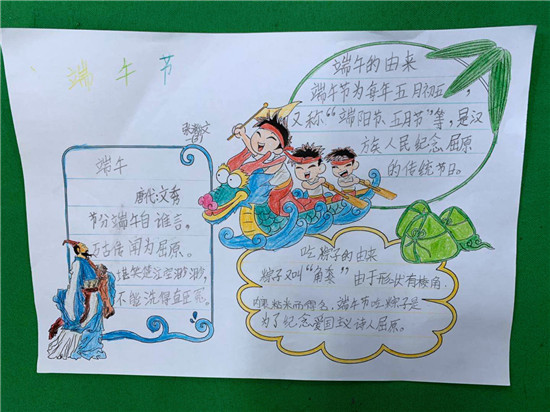 端午节
端午的由来
端午节为每年五月初五,
又称“端阳节、五月节”等,是汉
族人民纪念屈原
的传统节日。
端午
唐代文秀
节分端午自谁言,
万古传闻为屈原。
笑楚江空渺渺,
不能洗得直臣冤。
吃粽子的由来
粽子又叫“角黍”由于形状有棱角,
内裹粘米而得名,端午节吃粽子是
为了纪念爱国主义诗人屈原。